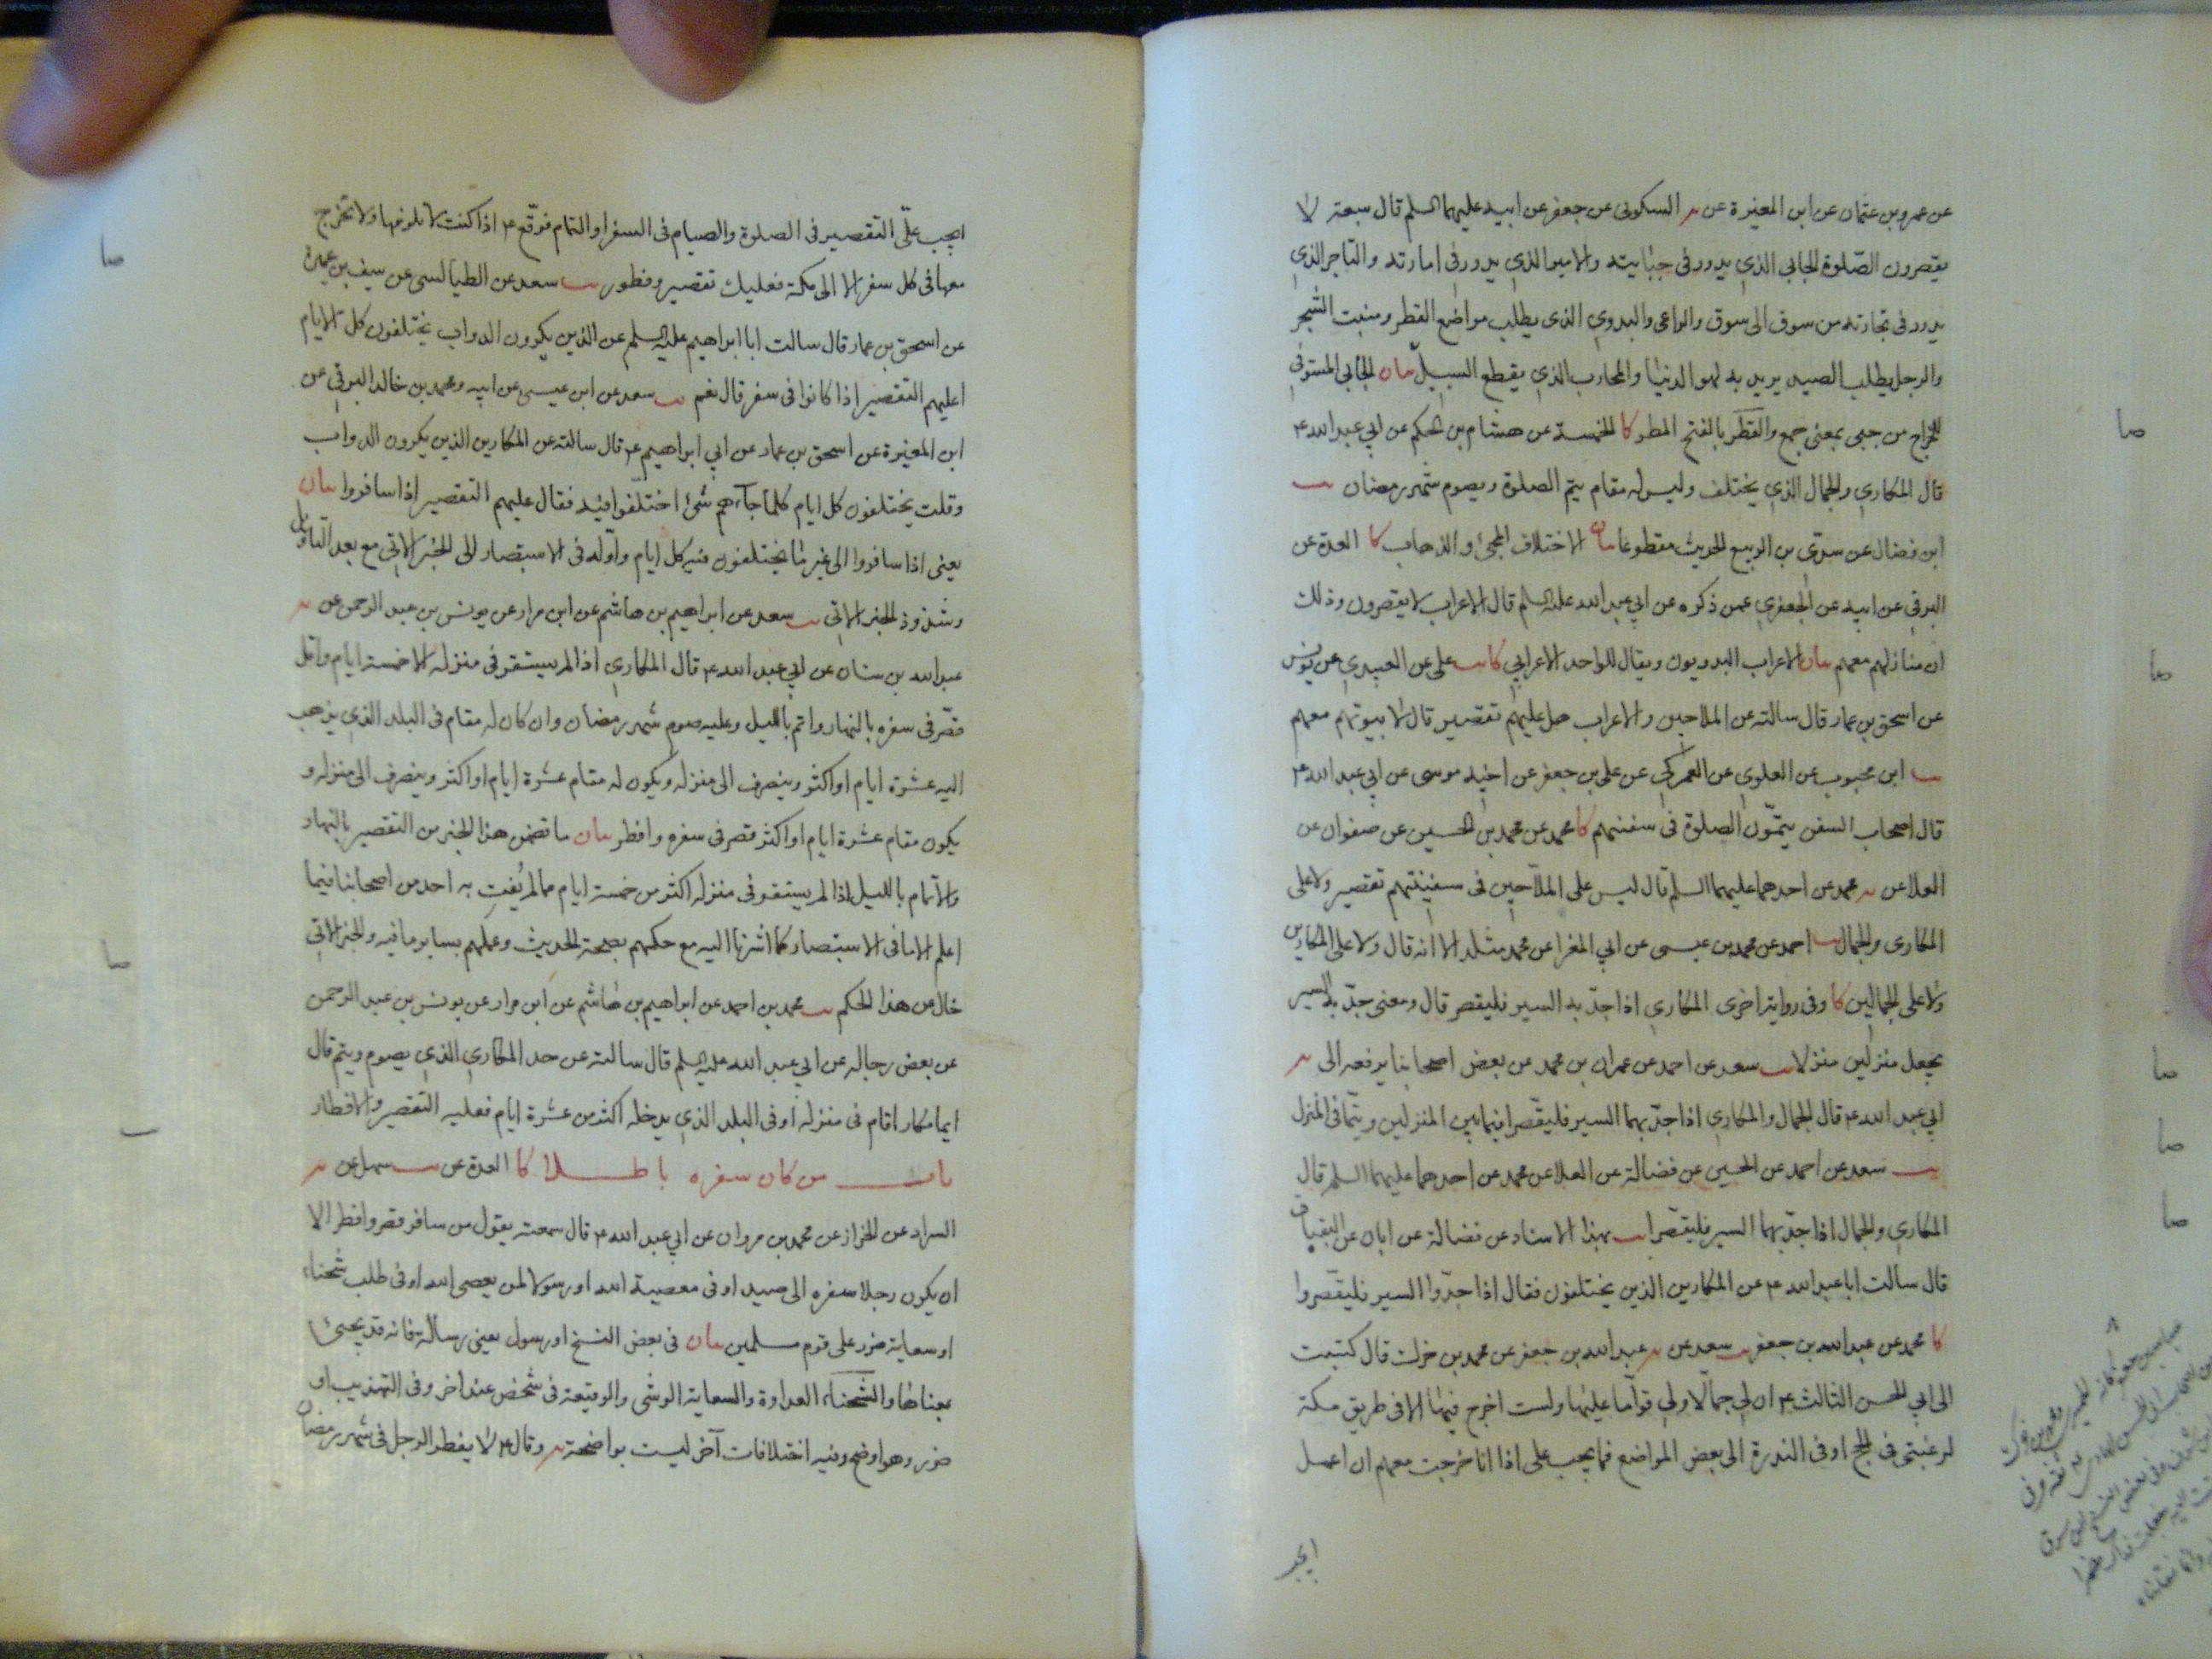 عن عمرو بن عثمان عن ابن المغيرة عن السكونى عن جعفر عن ابيه عليهما السلم قال سبعة لا
يقصرون الصّلوة الجابى الذي يدور فى جبايته والامير الذي يدور فى امارته والتاجر الذي
يدور فى تجارته من سوق الى سوق والراعى والبدوي الذى يطلب مواضع القطر ومنبت الشجر
والرجل يطلب الصيد يريد به لهو الدنيا والمحارب الذي يقطع السبيل بيان الجابى المستوفى
للخراج من جبى بمعنى جمع والقطر بالفتح المطر كا الخمسة عن هشام بن الحكم عن ابي عبد الله ع
قال المكاري والجمال الذي يختلف وليس له مقام يتم الصلوة ويصوم شهر رمضان يب
ابن فضال عن سندى بن الربيع الحديث مقطوعا بيان الاختلاف المجئ والذهاب كا العدة عن
البرقي عن ابيه عن الجعفري عمن ذكره عن ابي عبد الله عليه السلم قال الاعراب لا يقصرون وذلك
ان منازلهم معهم بيان الاعراب البدويون ويقال للواحد الاعرابي كا يب على عن العبيدي عن يونس
عن اسحق بن عمار قال سالته عن الملاحين والاعراب هل عليهم تقصير قال لا بيوتهم معهم
يب ابن محبوب عن العلوي عن العمركي عن على بن جعفر عن اخيه موسى عن ابي عبد الله ع
قال اصحاب السفن يتمّون الصلوة فى سفنهم كا محمد عن محمد بن الحسين عن صفوان عن
العلا عن محمد عن احدهما عليهما السلم قال ليس على الملاحين فى سفينتهم تقصير ولا على
المكارى والجمال يب احمد عن محمد بن عيسى عن ابي المغرا عن محمد مثله الا انه قال ولا على المكارين
ولا على الجمالين كا وفى رواية اخرى المكاري اذا جدّ به السير فليقصر قال ومعنى جدّ به السير
يجعل منزلين منزلا يب سعد عن احمد عن عمران بن محمد عن بعض اصحابنا يرفعه الى
ابي عبد الله ع قال الجمال والمكاري اذا جدّ بهما السير فليقصّرا فيما بين المنزلين ويتمّا فى المنزل
يب سعد عن احمد عن الحسين عن فضالة عن العلا عن محمد عن احدهما عليهما السلم قال
المكاري والجمال اذا جدّ بهما السير فليقصّرا يب بهذا الاسناد عن فضالة عن ابان عن البقباق
قال سالت ابا عبد الله ع عن المكارين الذين يختلفون فقال اذا جدّوا السير فليقصّروا
كا محمد عن عبد الله بن جعفر يب سعد عن عبد الله بن جعفر عن محمد بن جزك قال كتبت
الى ابي الحسن الثالث ع ان لي جمالا ولي قوّاما عليها ولست اخرج فيها الا فى طريق مكة
لرغبتى فى الحج او فى الندرة الى بعض المواضع فما يجب على اذا انا خرجت معهم ان اعمل
ايجب
ايجب علىّ التقصير فى الصلوة والصيام فى السفر او التمام فوقّع ع اذا كنت لا تلزمها ولا تخرج
معها فى كل سفر الا الى مكة فعليك تقصير وفطور يب سعد عن الطيالسى عن سيف بن عميرة
عن اسحق بن عمار قال سالت ابا ابراهيم عليه السلم عن الذين يكرون الدواب يختلفون كل الايام
اعليهم التقصير اذا كانوا فى سفر قال نعم يب سعد عن ابن عيسى عن ابيه ومحمد بن خالد البرقي عن
ابن المغيرة عن اسحق بن عمار عن ابي ابراهيم ع قال سالته عن المكارين الذين يكرون الدواب
وقلت يختلفون كل ايام كلما جاءهم شئ اختلفوا فيه فقال عليهم التقصير اذا سافروا بيان
يعنى اذا سافروا الى غير ما يختلفون فيه كل ايام واوّله فى الاستبصار الى الخبر الاتى مع بعد التاويل
وشذوذ الخبر الاتى يب سعد عن ابراهيم بن هاشم عن ابن مرار عن يونس بن عبد الرحمن عن
عبد الله بن سنان عن ابي عبد الله ع قال المكاري اذا لم يستقر فى منزله الا خمسة ايام واقل
قصّر فى سفره بالنهار واتم بالليل وعليه صوم شهر رمضان وان كان له مقام فى البلد الذي يذهب
اليه عشرة ايام او اكثر وينصرف الى منزله ويكون له مقام عشرة ايام او اكثر وينصرف الى منزله و
يكون مقام عشرة ايام او اكثر قصر فى سفره وافطر بيان ما تضمن هذا الخبر من التقصير بالنهار
والاتمام بالليل اذا لم يستقر فى منزله اكثر من خمسة ايام مما لم يُفتِ به احد من اصحابنا فيما
اعلم الا ما فى الاستبصار كما اشرنا اليه مع حكمهم بصحة الحديث وعملهم بساير ما فيه والخبر الاتى
خال عن هذا الحكم يب محمد بن احمد عن ابراهيم بن هاشم عن ابن مرار عن يونس بن عبد الرحمن
عن بعض رجاله عن ابي عبد الله عليه السلم قال سالته عن حد المكاري الذي يصوم ويتم قال
ايما مكار اقام فى منزله او فى البلد الذي يدخله اكثر من عشرة ايام فعليه التقصير والافطار
باب من كان سفره باطلا كا العدة عن يب سهل عن
السراد عن الخزاز عن محمد بن مروان عن ابي عبد الله ع قال سمعته يقول من سافر قصر وافطر الا
ان يكون رجلا سفره الى صيد او فى معصية الله او رسولا لمن يعصى الله او فى طلب شحناء
او سعاية ضرر على قوم مسلمين بيان فى بعض النسخ او رسول يعنى رسالة فانه قد يجئ
بمعناها والشحناء العداوة والسعاية الوشى والوقيعة فى شخص عند اخر وفى التهذيب او
ضرر وهو اوضح وفيه اختلافات آخر ليست بواضحة وقال ع لا يفطر الرجل فى شهر رمضان